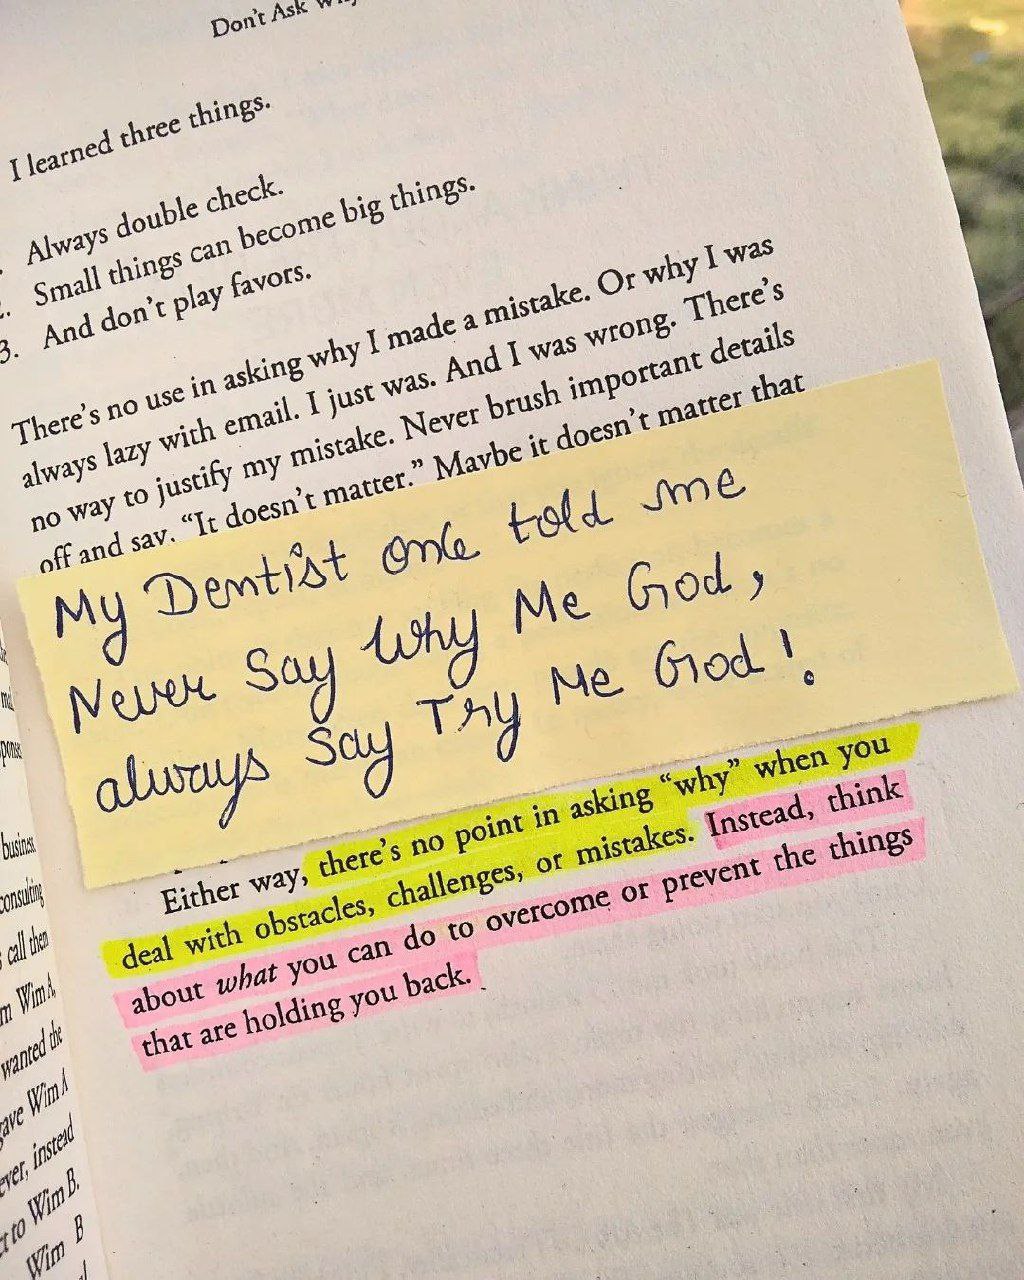 Don't Ask Why
I learned three things.
Always double check.
2. Small things can become big things.
3. And don't play favors.
There's no use in asking why I made a mistake. Or why I was
always lazy with email. I just was. And I was wrong. There's
no way to justify my mistake. Never brush important details
off and say, "It doesn't matter." Maybe it doesn't matter that
My Dentist once told me
Never Say Why Me God,
always Say Try Me God!
Either way, there's no point in asking "why" when you
deal with obstacles, challenges, or mistakes. Instead, think
about what you can do to overcome or prevent the things
that are holding you back.
business
consulting
call then
Wim A,
wanted the
gave Wim A
ever, instead
to Wim B.
Wim B